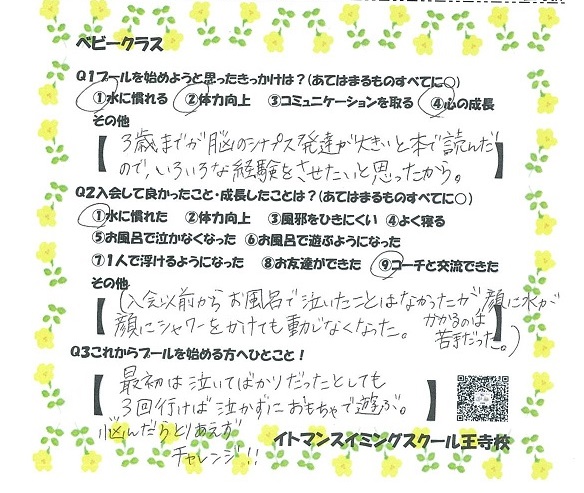 ベビークラス
Q1プールを始めようと思ったきっかけは？(あてはまるものすべてに○)
①水に慣れる ②体力向上 ③コミュニケーションを取る ④心の成長
その他
【3歳までが脳のシナプス発達が大きいと本で読んだ
ので、いろいろな経験をさせたいと思ったから。】
Q2入会して良かったこと・成長したことは？(あてはまるものすべてに○)
①水に慣れた ②体力向上 ③風邪をひきにくい ④よく寝る
⑤お風呂で泣かなくなった ⑥お風呂で遊ぶようになった
⑦1人で浮けるようになった ⑧お友達ができた ⑨コーチと交流できた
その他
【(入会以前からお風呂で泣いたことはなかったが顔に水が
かかるのは
苦手だった。)
顔にシャワーをかけても動じなくなった。】
Q3これからプールを始める方へひとこと！
【最初は泣いてばかりだったとしても
3回行けば泣かずにおもちゃで遊ぶ。】
悩んだらとりあえず
チャレンジ!!
イトマンスイミングスクール王寺校